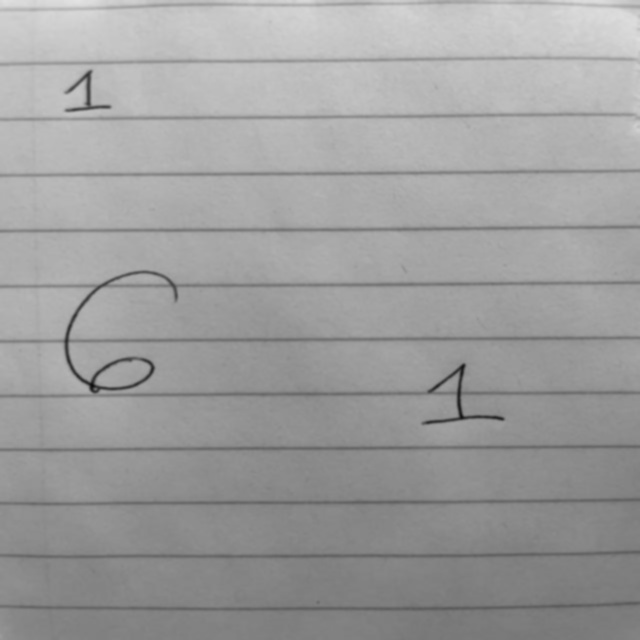 1
6
1